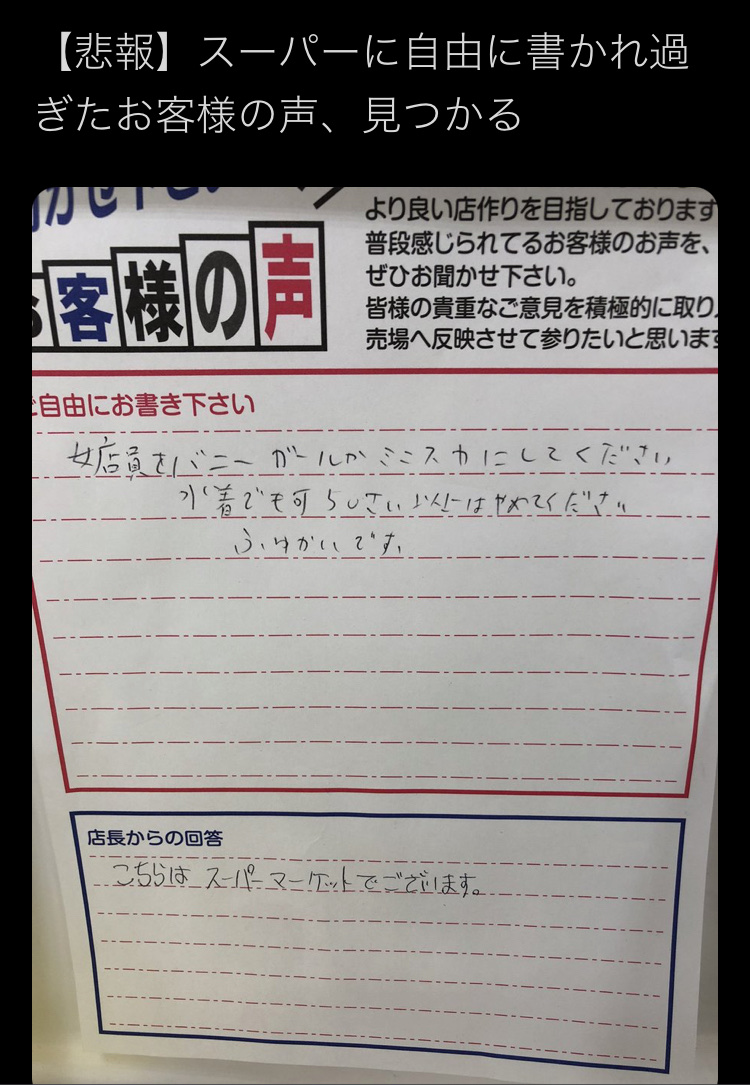 【悲報】スーパーに自由に書かれ過
ぎたお客様の声、見つかる
客様の声
より良い店作りを目指しております
普段感じられてるお客様のお声を、
ぜひお聞かせ下さい。
皆様の貴重なご意見を積極的に取り
売場へ反映させて参りたいと思います
ご自由にお書き下さい
女店員をバニーガールかミニスカにしてください
水着でも可 50さい以上はやめてください
ふゆかいです。
店長からの回答
こちらは スーパーマーケットでございます。